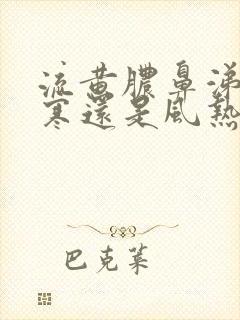 流黄膿鼻涕
寒還是風熱
巴克萊